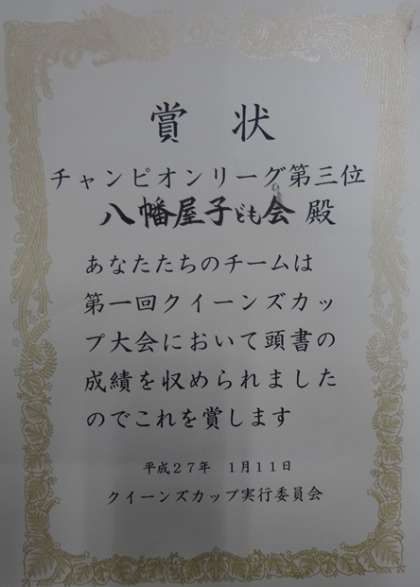 賞状
チャンピオンリーグ第三位
八幡屋子ども会 殿
あなたたちのチームは
第一回クイーンズカッ
プ大会において頭書の
成績を収められました
のでこれを賞します
平成27年 1月11日
クイーンズカップ実行委員会